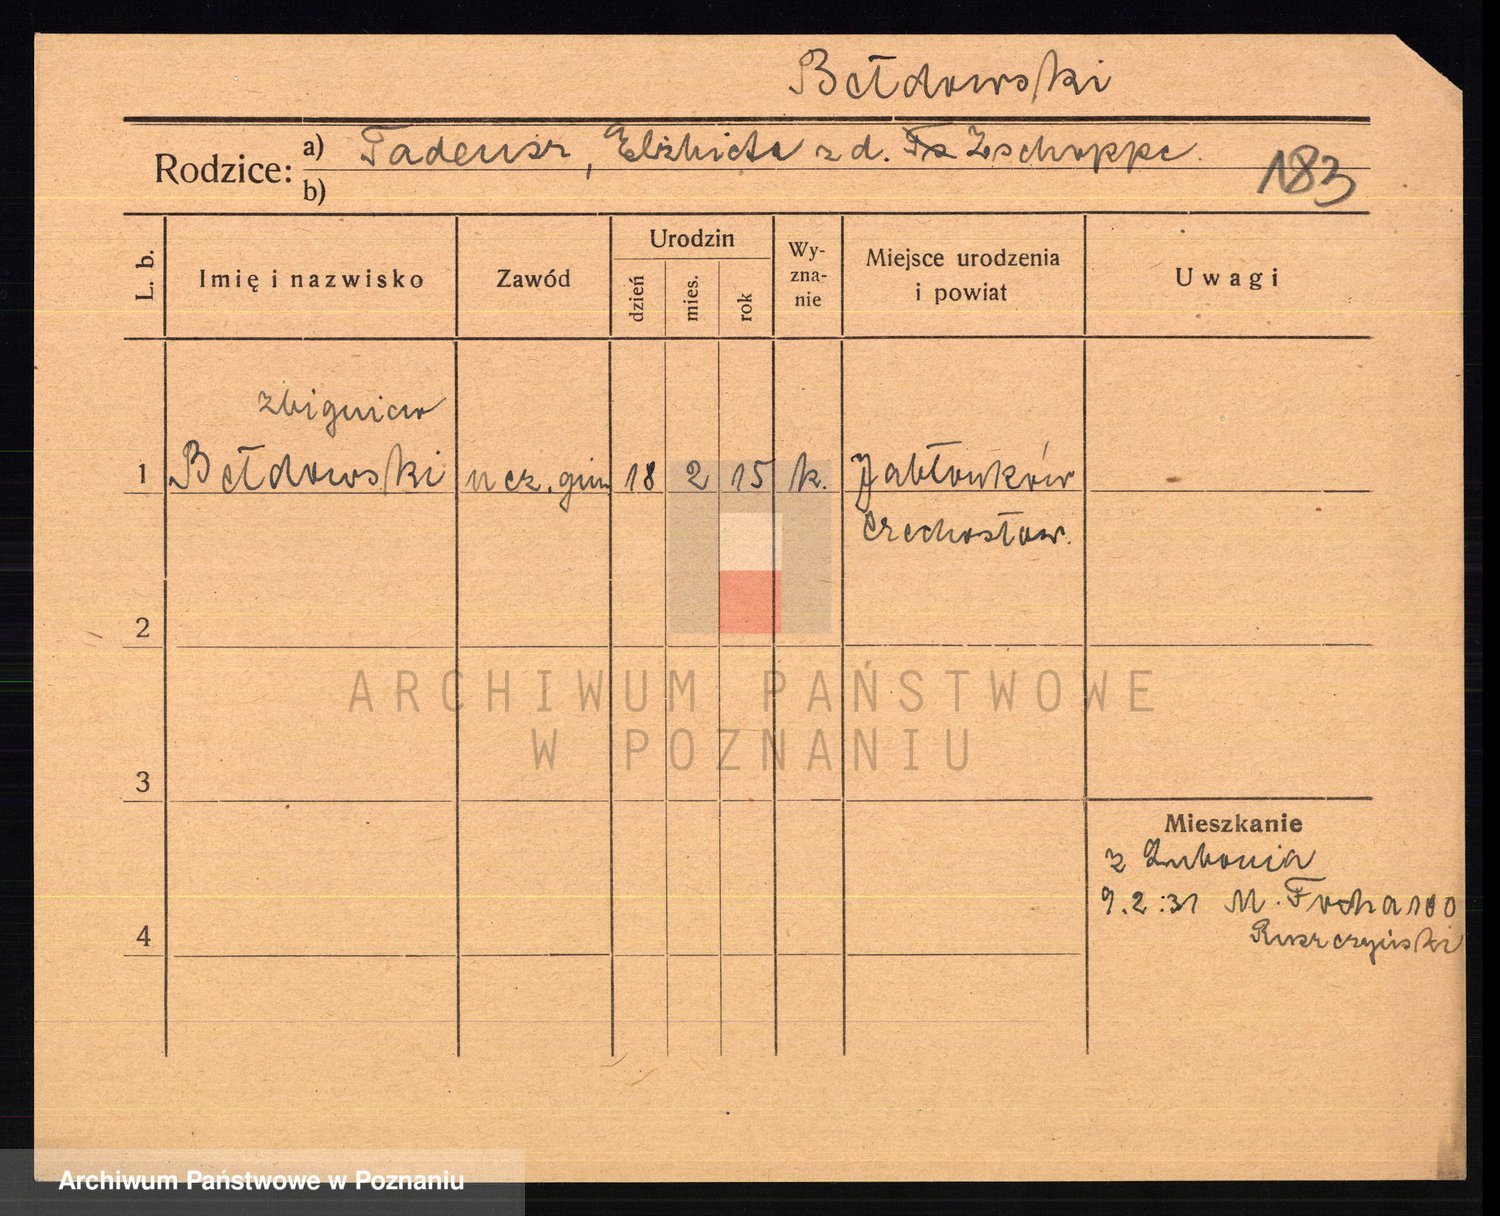 Bełdowski
Rodzice: a) Tadeusz, Elżbieta z d. Zschoppe.
b)
183
L. b. Imię i nazwisko Zawód Urodzin dzień mies. rok Wy-zna-nie Miejsce urodzenia i powiat Uwagi
Zbigniew
1 Bełdowski ucz. gim 18 2 15 k. Jabłonków
Czechosłow.
2
3
Mieszkanie
z Lubonia
9.2.31 M. Focha 100
4 Ruszczyński
ARCHIWUM PAŃSTWOWE
W POZNANIU
Archiwum Państwowe w Poznaniu